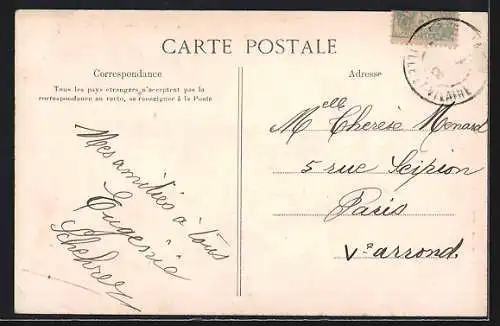 CARTE POSTALE
Correspondance
Tous les pays étrangers n'acceptent pas la
correspondance au recto, se renseigner à la Poste
Adresse
ILLE-&-VILAINE
Melle Therese Menard
5 rue Scipion
Paris
Ve arrond.
Mes amitiés à tous
Eugénie